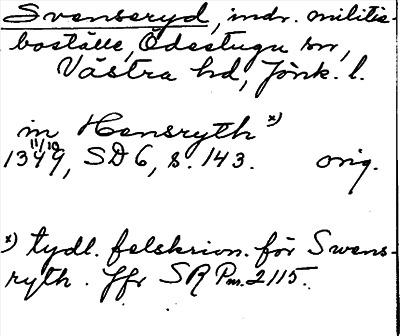 Svenseryd, indr. militie-
boställe, Ödestugu sn,
Västra hd, Jönk. l.
in Hensryth x)
11/10
1349, SD 6, s. 143. orig.
x) tydl. felskrivn. för Swens-
ryth. Jfr SR Pm. 2115.